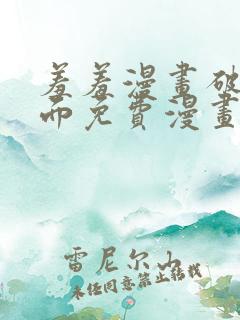 羞羞漫畫破
而免費漫畫
雷尼尔山
未经同意禁止转载